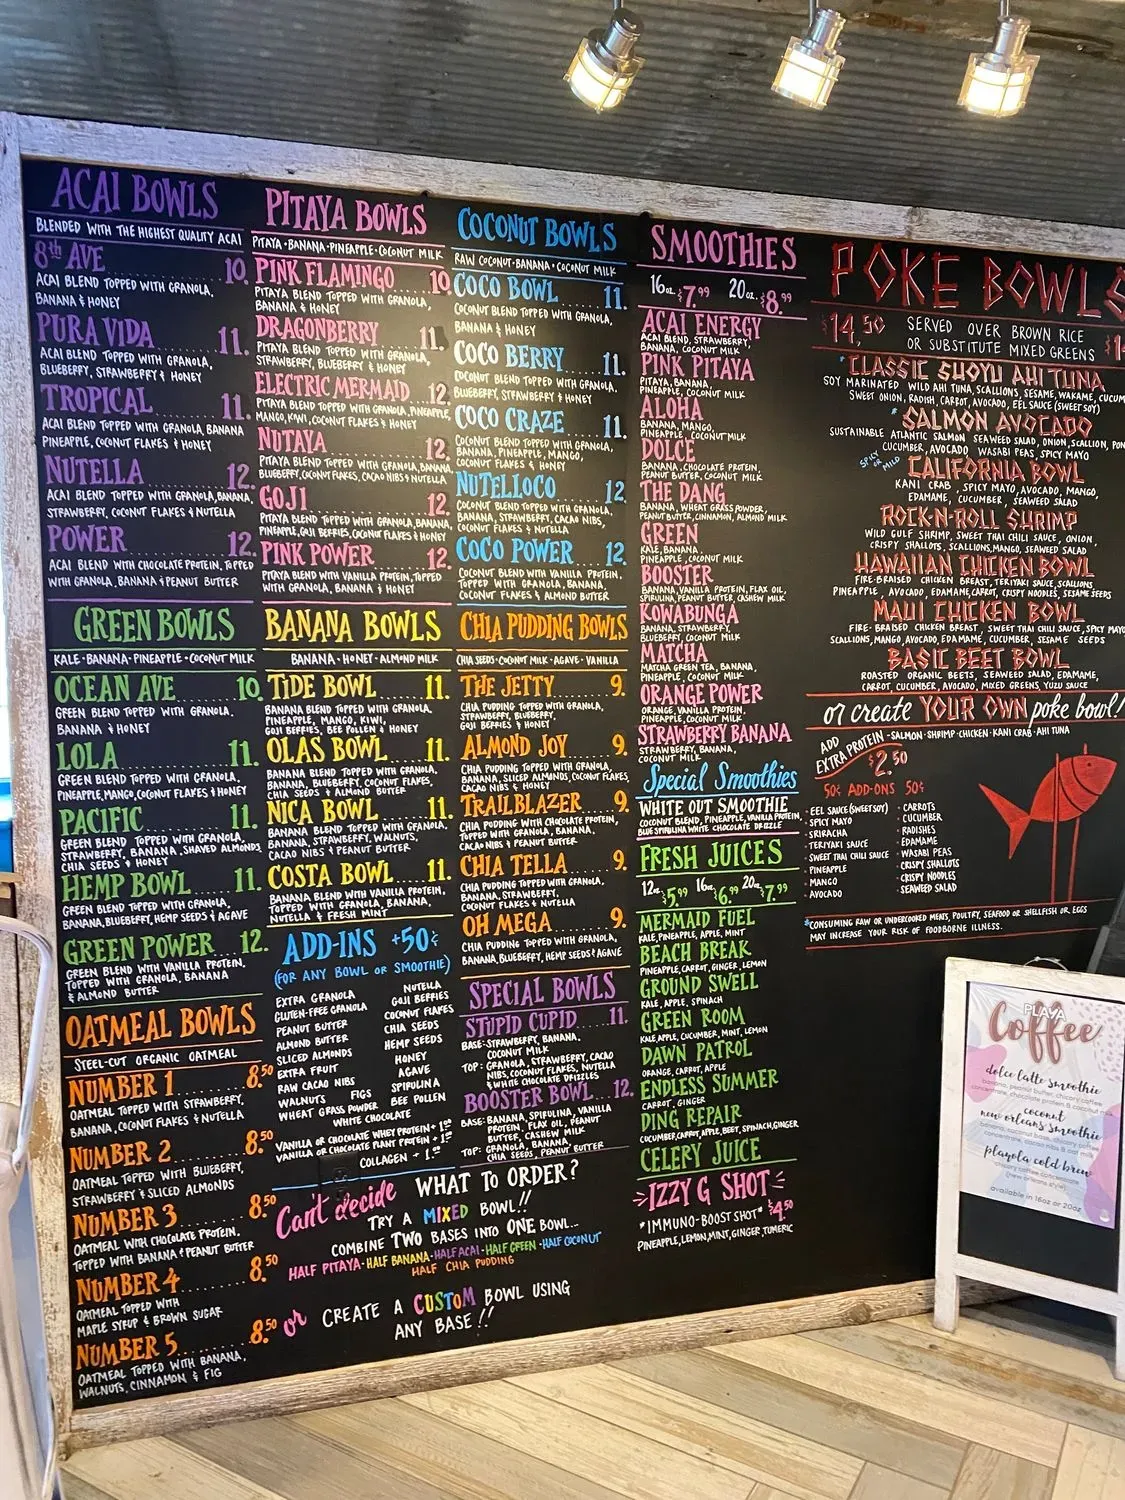 ACAI BOWLS
BLENDED WITH THE HIGHEST QUALITY ACAI
8th AVE 10.
ACAI BLEND TOPPED WITH GRANOLA,
BANANA & HONEY
PURA VIDA 11.
ACAI BLEND TOPPED WITH GRANOLA,
BLUEBERRY, STRAWBERRY & HONEY
TROPICAL 11.
ACAI BLEND TOPPED WITH GRANOLA, BANANA
PINEAPPLE, COCONUT FLAKES & HONEY
NUTELLA 12.
ACAI BLEND TOPPED WITH GRANOLA, BANANA,
STRAWBERRY, COCONUT FLAKES & NUTELLA
POWER 12.
ACAI BLEND WITH CHOCOLATE PROTEIN, TOPPED
WITH GRANOLA, BANANA & PEANUT BUTTER
GREEN BOWLS
KALE·BANANA·PINEAPPLE·COCONUT MILK
OCEAN AVE 10.
GREEN BLEND TOPPED WITH GRANOLA.
BANANA & HONEY
LOLA 11.
GREEN BLEND TOPPED WITH GRANOLA,
PINEAPPLE, MANGO, COCONUT FLAKES & HONEY
PACIFIC 11.
GREEN BLEND TOPPED WITH GRANOLA
STRAWBERRY, BANANA, SHAVED ALMONDS,
CHIA SEEDS & HONEY
HEMP BOWL 11.
GREEN BLEND TOPPED WITH GRANOLA,
BANANA, BLUEBERRY, HEMP SEEDS & AGAVE
GREEN POWER 12.
GREEN BLEND WITH VANILLA PROTEIN,
TOPPED WITH GRANOLA, BANANA
& ALMOND BUTTER
OATMEAL BOWLS
STEEL-CUT ORGANIC OATMEAL
NUMBER 1 8.50
OATMEAL TOPPED WITH STRAWBERRY,
BANANA, COCONUT FLAKES & NUTELLA
NUMBER 2 8.50
OATMEAL TOPPED WITH BLUEBERRY,
STRAWBERRY & SLICED ALMONDS
NUMBER 3 8.50
OATMEAL WITH CHOCOLATE PROTEIN,
TOPPED WITH BANANA & PEANUT BUTTER
NUMBER 4 8.50
OATMEAL TOPPED WITH
MAPLE SYRUP & BROWN SUGAR
NUMBER 5 8.50
OATMEAL TOPPED WITH BANANA,
WALNUTS, CINNAMON & FIG
PITAYA BOWLS
PITAYA·BANANA·PINEAPPLE·COCONUT MILK
PINK FLAMINGO 10.
PITAYA BLEND TOPPED WITH GRANOLA,
BANANA & HONEY
DRAGONBERRY 11.
PITAYA BLEND TOPPED WITH GRANOLA,
STRAWBERRY, BLUEBERRY & HONEY
ELECTRIC MERMAID 12.
PITAYA BLEND TOPPED WITH GRANOLA, PINEAPPLE,
MANGO, KIWI, COCONUT FLAKES & HONEY
NUTAYA 12.
PITAYA BLEND TOPPED WITH GRANOLA, BANANA
BLUEBERRY, COCONUT FLAKES, CACAO NIBS & NUTELLA
GOJI 12.
PITAYA BLEND TOPPED WITH GRANOLA, BANANA,
PINEAPPLE, GOJI BERRIES, COCONUT FLAKES & HONEY
PINK POWER 12.
PITAYA BLEND WITH VANILLA PROTEIN, TOPPED
WITH GRANOLA, BANANA & HONEY
BANANA BOWLS
BANANA·HONEY·ALMOND MILK
TIDE BOWL 11.
BANANA BLEND TOPPED WITH GRANOLA,
PINEAPPLE, MANGO, KIWI,
GOJI BERRIES, BEE POLLEN & HONEY
OLAS BOWL 11.
BANANA BLEND TOPPED WITH GRANOLA,
BANANA, BLUEBERRY, COCONUT FLAKES,
CHIA SEEDS & ALMOND BUTTER
NICA BOWL 11.
BANANA BLEND TOPPED WITH GRANOLA,
BANANA, STRAWBERRY, WALNUTS,
CACAO NIBS & PEANUT BUTTER
COSTA BOWL 11.
BANANA BLEND WITH VANILLA PROTEIN,
TOPPED WITH GRANOLA, BANANA,
NUTELLA & FRESH MINT
ADD-INS +50¢
(FOR ANY BOWL OR SMOOTHIE)
EXTRA GRANOLA
GLUTEN-FREE GRANOLA
PEANUT BUTTER
ALMOND BUTTER
SLICED ALMONDS
EXTRA FRUIT
RAW CACAO NIBS
WALNUTS FIGS
WHEAT GRASS POWDER
NUTELLA
GOJI BERRIES
COCONUT FLAKES
CHIA SEEDS
HEMP SEEDS
HONEY
AGAVE
SPIRULINA
BEE POLLEN
WHITE CHOCOLATE
VANILLA OR CHOCOLATE WHEY PROTEIN + 1.00
VANILLA OR CHOCOLATE PLANT PROTEIN + 1.00
COLLAGEN + 1.00
Can't decide WHAT TO ORDER?
TRY A MIXED BOWL!!
COMBINE TWO BASES INTO ONE BOWL...
HALF PITAYA·HALF BANANA·HALF ACAI·HALF GREEN·HALF COCONUT
HALF CHIA PUDDING
or CREATE A CUSTOM BOWL USING
ANY BASE!!
COCONUT BOWLS
RAW COCONUT·BANANA·COCONUT MILK
COCO BOWL 11.
COCONUT BLEND TOPPED WITH GRANOLA,
BANANA & HONEY
COCO BERRY 11.
COCONUT BLEND TOPPED WITH GRANOLA,
BLUEBERRY, STRAWBERRY & HONEY
COCO CRAZE 11.
COCONUT BLEND TOPPED WITH GRANOLA,
BANANA, PINEAPPLE, MANGO,
COCONUT FLAKES & HONEY
NUTELLOCO 12
COCONUT BLEND TOPPED WITH GRANOLA,
BANANA, STRAWBERRY, CACAO NIBS,
COCONUT FLAKES & NUTELLA
COCO POWER 12
COCONUT BLEND WITH VANILLA PROTEIN,
TOPPED WITH GRANOLA, BANANA,
COCONUT FLAKES & ALMOND BUTTER
CHIA PUDDING BOWLS
CHIA SEEDS·COCONUT MILK·AGAVE·VANILLA
THE JETTY 9.
CHIA PUDDING TOPPED WITH GRANOLA,
STRAWBERRY, BLUEBERRY,
GOJI BERRIES & HONEY
ALMOND JOY 9.
CHIA PUDDING TOPPED WITH GRANOLA,
BANANA, SLICED ALMONDS, COCONUT FLAKES,
CACAO NIBS & HONEY
TRAILBLAZER 9.
CHIA PUDDING WITH CHOCOLATE PROTEIN,
TOPPED WITH GRANOLA, BANANA,
CACAO NIBS & PEANUT BUTTER
CHIA TELLA 9.
CHIA PUDDING TOPPED WITH GRANOLA,
BANANA, STRAWBERRY,
COCONUT FLAKES & NUTELLA
OH MEGA 9.
CHIA PUDDING TOPPED WITH GRANOLA,
BANANA, BLUEBERRY, HEMP SEEDS & AGAVE
SPECIAL BOWLS
STUPID CUPID 11.
BASE: STRAWBERRY, BANANA,
COCONUT MILK
TOP: GRANOLA, STRAWBERRY, CACAO
NIBS, COCONUT FLAKES, NUTELLA
& WHITE CHOCOLATE DRIZZLES
BOOSTER BOWL 12.
BASE: BANANA, SPIRULINA, VANILLA
PROTEIN, FLAX OIL, PEANUT
BUTTER, CASHEW MILK
TOP: GRANOLA, BANANA,
CHIA SEEDS, PEANUT BUTTER
SMOOTHIES
16oz. $7.99 20oz. $8.99
ACAI ENERGY
ACAI BLEND, STRAWBERRY,
BANANA, COCONUT MILK
PINK PITAYA
PITAYA, BANANA,
PINEAPPLE, COCONUT MILK
ALOHA
BANANA, MANGO,
PINEAPPLE, COCONUT MILK
DOLCE
BANANA, CHOCOLATE PROTEIN,
PEANUT BUTTER, COCONUT MILK
THE DANG
BANANA, WHEAT GRASS POWDER,
PEANUT BUTTER, CINNAMON, ALMOND MILK
GREEN
KALE, BANANA,
PINEAPPLE, COCONUT MILK
BOOSTER
BANANA, VANILLA PROTEIN, FLAX OIL,
SPIRULINA, PEANUT BUTTER, CASHEW MILK
KOWABUNGA
BANANA, STRAWBERRY,
BLUEBERRY, COCONUT MILK
MATCHA
MATCHA GREEN TEA, BANANA,
PINEAPPLE, COCONUT MILK
ORANGE POWER
ORANGE, VANILLA PROTEIN,
PINEAPPLE, COCONUT MILK
STRAWBERRY BANANA
STRAWBERRY, BANANA,
COCONUT MILK
Special Smoothies
WHITE OUT SMOOTHIE
COCONUT BLEND, PINEAPPLE, VANILLA PROTEIN,
BLUE SPIRULINA WHITE CHOCOLATE DRIZZLE
FRESH JUICES
12oz $5.99 16oz $6.99 20oz $7.99
MERMAID FUEL
KALE, PINEAPPLE, APPLE, MINT
BEACH BREAK
PINEAPPLE, CARROT, GINGER, LEMON
GROUND SWELL
KALE, APPLE, SPINACH
GREEN ROOM
KALE, APPLE, CUCUMBER, MINT, LEMON
DAWN PATROL
ORANGE, CARROT, APPLE
ENDLESS SUMMER
CARROT, GINGER
DING REPAIR
CUCUMBER, CARROT, APPLE, BEET, SPINACH, GINGER
CELERY JUICE
IZZY G SHOT
*IMMUNO-BOOST SHOT* $4.50
PINEAPPLE, LEMON, MINT, GINGER, TUMERIC
POKE BOWLS
$14.50 SERVED OVER BROWN RICE
OR SUBSTITUTE MIXED GREENS $1
*CLASSIC SHOYU AHI TUNA
SOY MARINATED WILD AHI TUNA, SCALLIONS, SESAME, WAKAME, CUCUM
SWEET ONION, RADISH, CARROT, AVOCADO, EEL SAUCE (SWEET SOY)
*SALMON AVOCADO
SUSTAINABLE ATLANTIC SALMON SEAWEED SALAD, ONION, SCALLION, PON
CUCUMBER, AVOCADO WASABI PEAS, SPICY MAYO
SPICY OR MILD
CALIFORNIA BOWL
KANI CRAB, SPICY MAYO, AVOCADO, MANGO,
EDAMAME, CUCUMBER, SEAWEED SALAD
ROCK-N-ROLL SHRIMP
WILD GULF SHRIMP, SWEET THAI CHILI SAUCE, ONION,
CRISPY SHALLOTS, SCALLIONS, MANGO, SEAWEED SALAD
HAWAIIAN CHICKEN BOWL
FIRE-BRAISED CHICKEN BREAST, TERIYAKI SAUCE, SCALLIONS
PINEAPPLE, AVOCADO, EDAMAME, CARROT, CRISPY NOODLES, SESAME SEEDS
MAUI CHICKEN BOWL
FIRE-BRAISED CHICKEN BREAST, SWEET THAI CHILI SAUCE, SPICY MAYO
SCALLIONS, MANGO, AVOCADO, EDAMAME, CUCUMBER, SESAME SEEDS
BASIC BEET BOWL
ROASTED ORGANIC BEETS, SEAWEED SALAD, EDAMAME,
CARROT, CUCUMBER, AVOCADO, MIXED GREENS, YUZU SAUCE
or create YOUR OWN poke bowl!
ADD EXTRA PROTEIN·SALMON·SHRIMP·CHICKEN·KANI CRAB·AHI TUNA
$2.50
50¢ ADD-ONS 50¢
·EEL SAUCE (SWEET SOY)
·SPICY MAYO
·SRIRACHA
·TERIYAKI SAUCE
·SWEET THAI CHILI SAUCE
·PINEAPPLE
·MANGO
·AVOCADO
·CARROTS
·CUCUMBER
·RADISHES
·EDAMAME
·WASABI PEAS
·CRISPY SHALLOTS
·CRISPY NOODLES
·SEAWEED SALAD
*CONSUMING RAW OR UNDERCOOKED MEATS, POULTRY, SEAFOOD OR SHELLFISH OR EGGS
MAY INCREASE YOUR RISK OF FOODBORNE ILLNESS.
PLAYA
Coffee
dolce latte smoothie
banana, peanut butter, chicory coffee
concentrate, chocolate protein & coconut m
coconut
new orleans smoothie
banana, coconut base, chicory coffee
concentrate, cacao nibs & oat milk
playola cold brew
chicory coffee concentrate
(new orleans style)
available in 16oz or 20oz